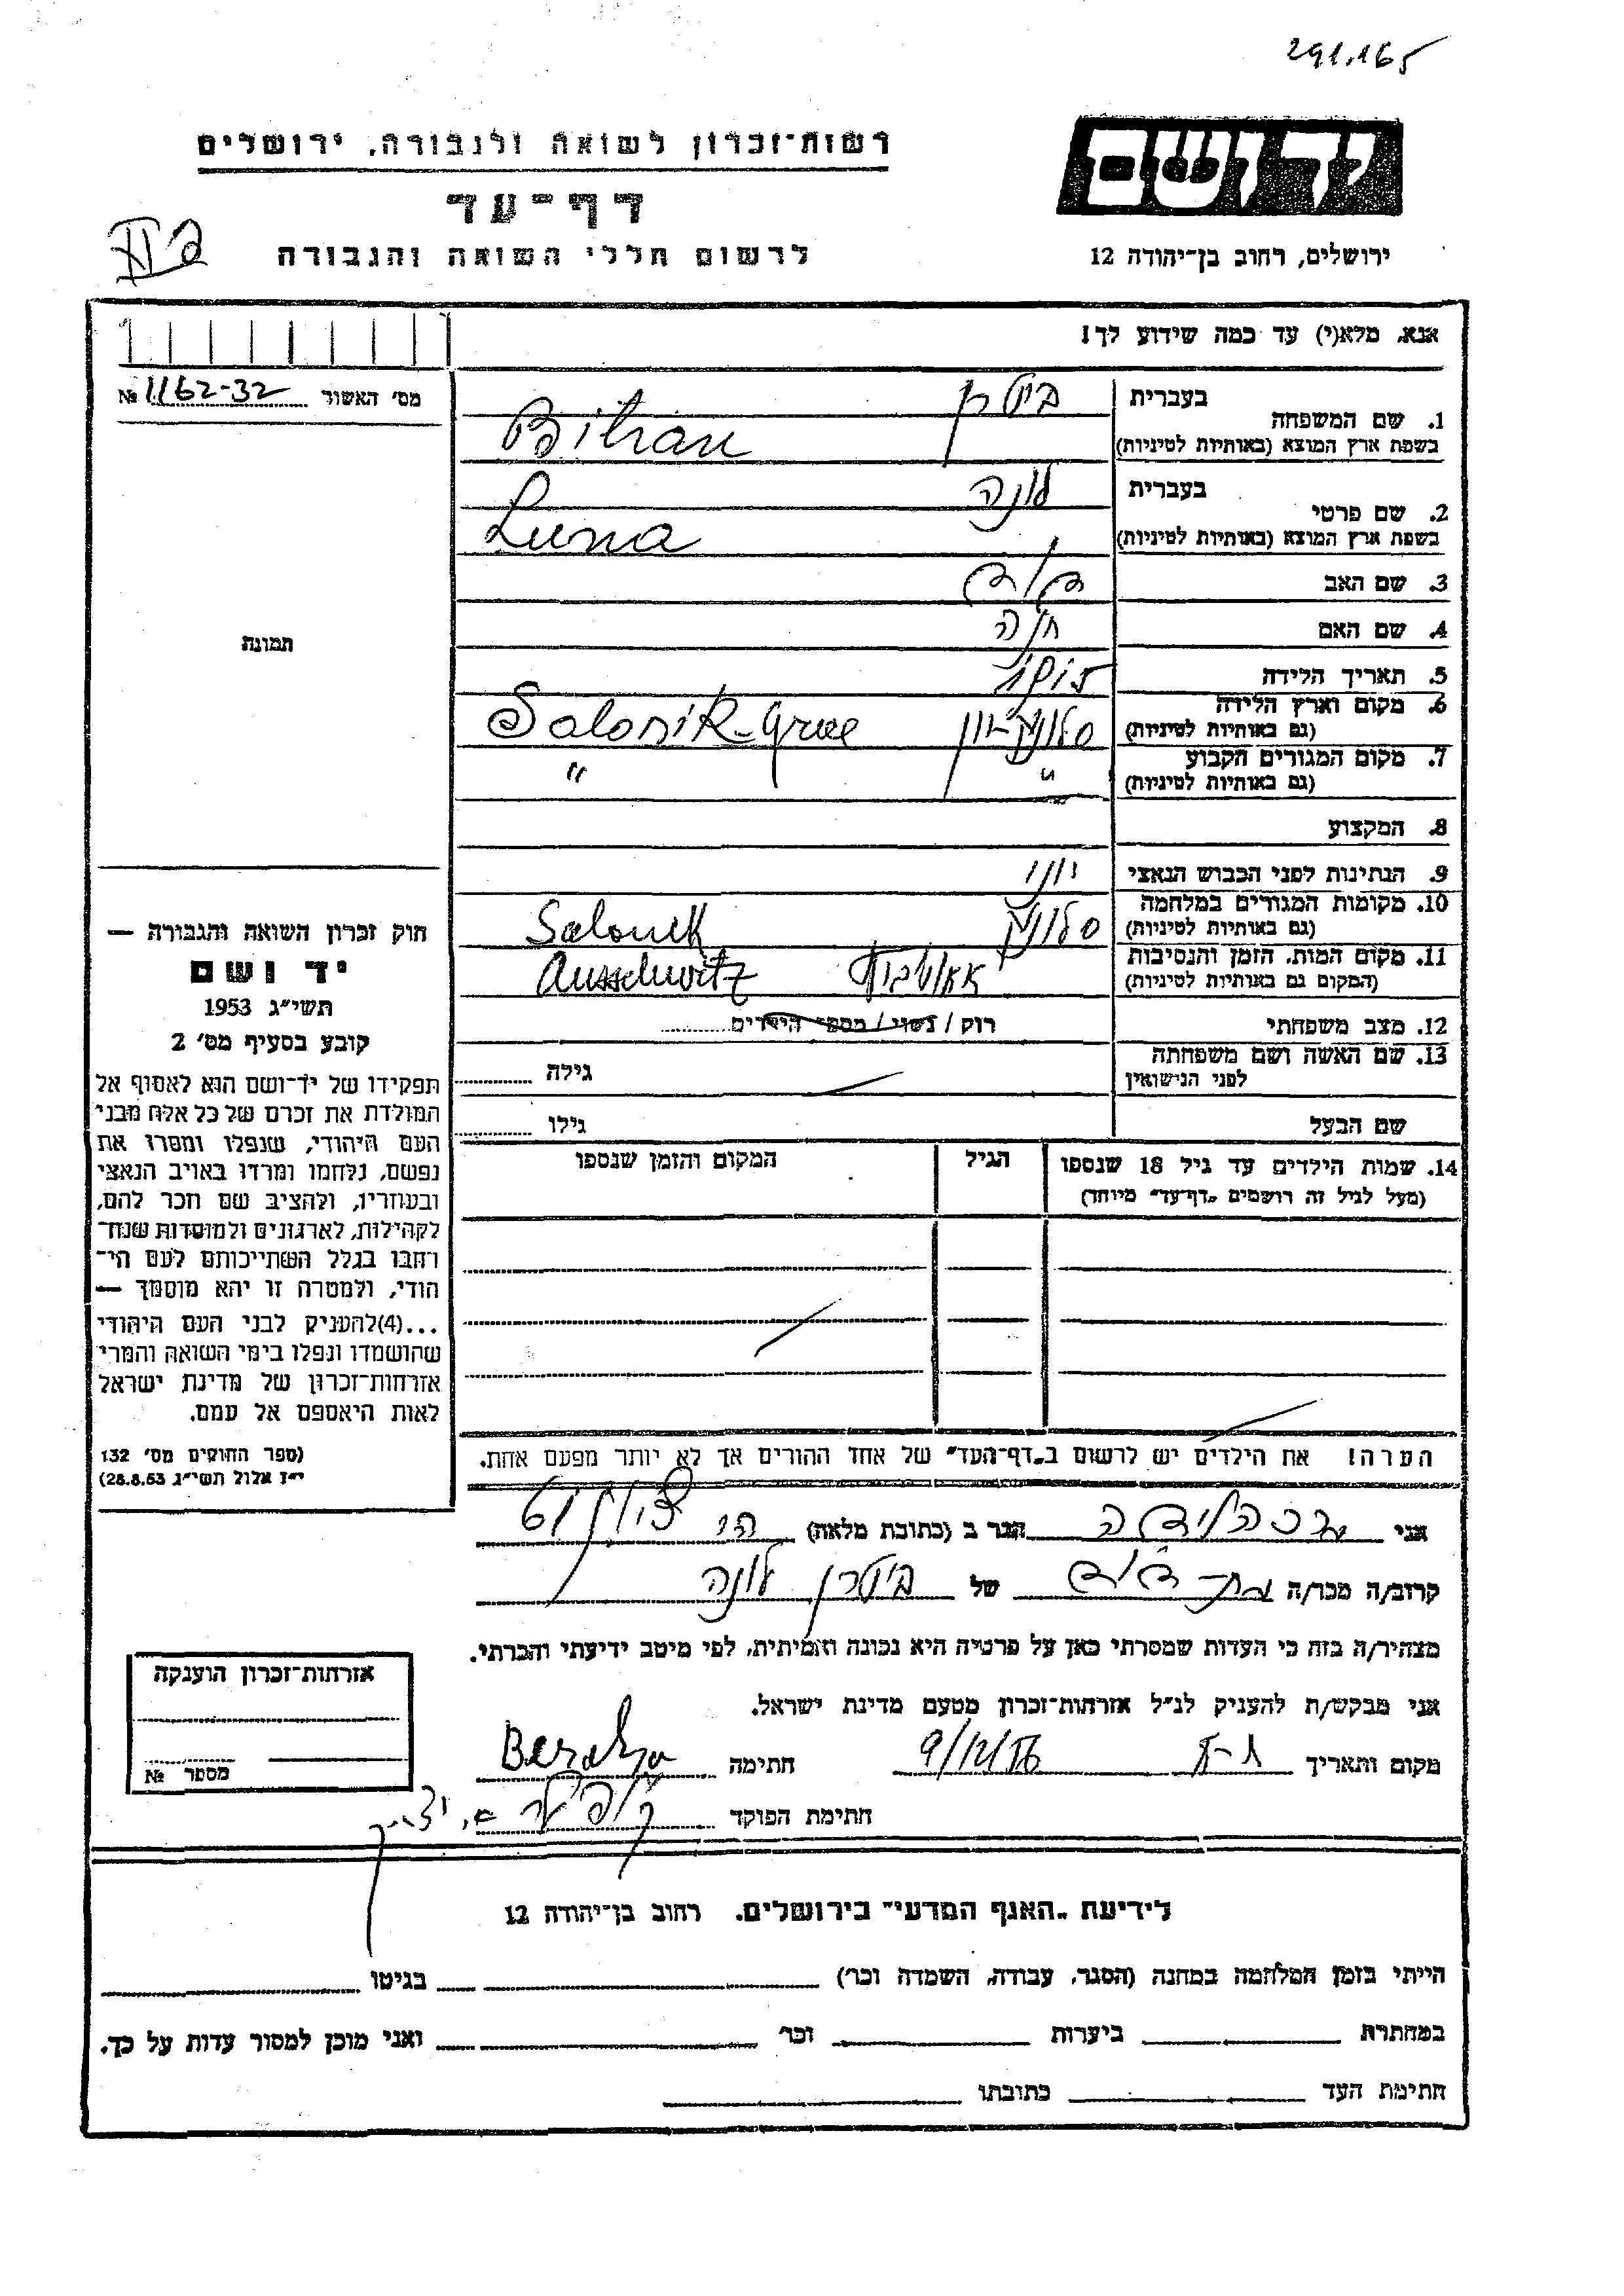 291.165
יד ושם
רשות־זכרון לשואה ולגבורה, ירושלים
דף־עד
לרשום חללי השואה והגבורה
ירושלים, רחוב בן־יהודה 12
אנא, מלא(י) עד כמה שידוע לך!
מס׳ האשור № 1162-32
תמונה
1. שם המשפחה בעברית ביטרן
בשפת ארץ המוצא (באותיות לטיניות) Bitran
2. שם פרטי בעברית לונה
בשפת ארץ המוצא (באותיות לטיניות) Luna
3. שם האב דוד
4. שם האם חנה
5. תאריך הלידה
6. מקום וארץ הלידה
(גם באותיות לטיניות) סלוניק-יון Salonik-Grece
7. מקום המגורים הקבוע
(גם באותיות לטיניות) " "
8. המקצוע
9. הנתינות לפני הכבוש הנאצי יוני
10. מקומות המגורים במלחמה
(גם באותיות לטיניות) סלוניק Salonik
11. מקום המות, הזמן והנסיבות
(המקום גם באותיות לטיניות) Ausschwitz
12. מצב משפחתי רווק / נשוי / מספר הילדים
13. שם האשה ושם משפחתה
לפני הנישואין גילה
שם הבעל גילו
14. שמות הילדים עד גיל 18 שנספו הגיל המקום והזמן שנספו
(מעל לגיל זה רושמים „דף־עד״ מיוחד)
הערה! את הילדים יש לרשום ב„דף־העד״ של אחד ההורים אך לא יותר מפעם אחת.
חוק זכרון השואה והגבורה —
יד ושם
תשי״ג 1953
קובע בסעיף מס׳ 2
תפקידו של יד־ושם הוא לאסוף אל
המולדת את זכרם של כל אלה מבני
העם היהודי, שנפלו ומסרו את
נפשם, נלחמו ומרדו באויב הנאצי
ובעוזריו, ולהציב שם וזכר להם,
לקהילות, לארגונים ולמוסדות שנח־
רבו בגלל השתייכותם לעם הי־
הודי, ולמטרה זו יהא מוסמך —
...(4)להעניק לבני העם היהודי
שהושמדו ונפלו בימי השואה והמרי
אזרחות־זכרון של מדינת ישראל
לאות היאספם אל עמם.
(ספר החוקים מס׳ 132
י״ז אלול תשי״ג 28.8.53)
אני הגר ב (כתובת מלאה)
קרוב/ה מכר/ה של ביטרן לונה
מצהיר/ה בזה כי העדות שמסרתי כאן על פרטיה היא נכונה ואמיתית, לפי מיטב ידיעתי והכרתי.
אני מבקש/ת להעניק לנ״ל אזרחות־זכרון מטעם מדינת ישראל.
מקום ותאריך 9/12/56 חתימה Beraha
חתימת הפוקד
אזרחות־זכרון הוענקה
מספר №
לידיעת „האגף המדעי״ בירושלים, רחוב בן־יהודה 12
הייתי בזמן המלחמה במחנה (הסגר, עבודה, השמדה וכו׳) בגיטו
במחתרת ביערות וכו׳ ואני מוכן למסור עדות על כך.
חתימת העד כתובתו